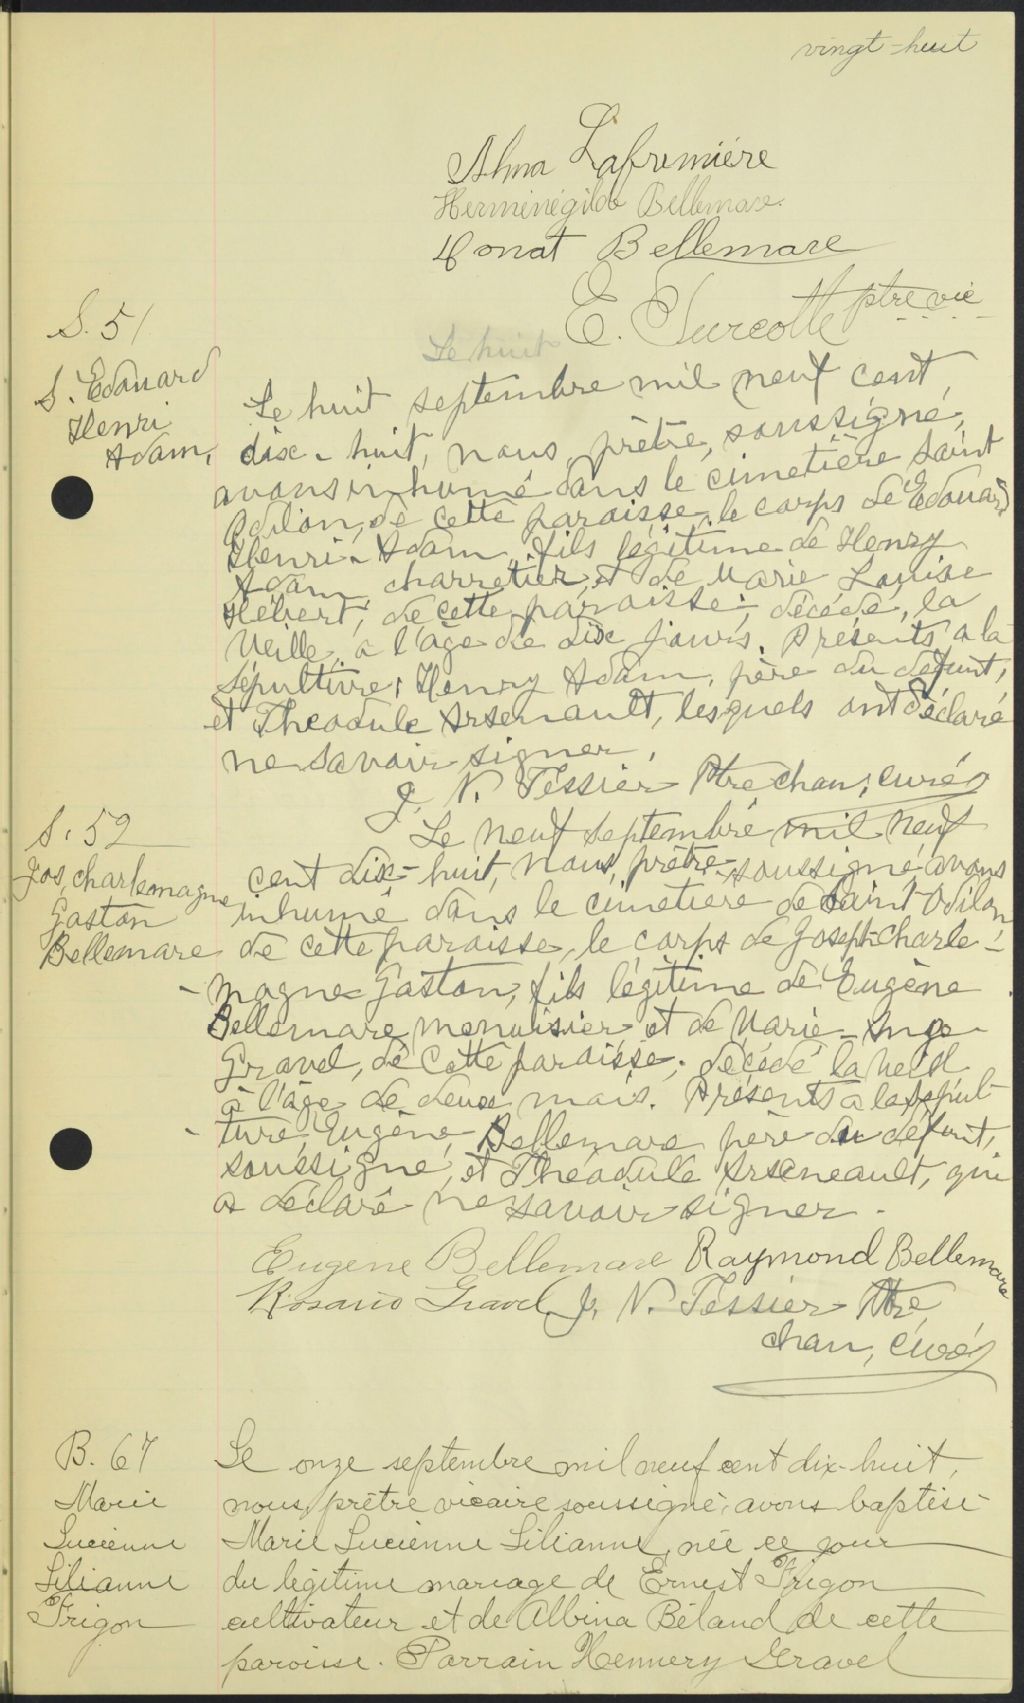 vingt-huit
Alma Lafremière
Herménégilde Bellemare.
Donat Bellemare
E. Turcotte ptre vic
Le huit
S. 51
S. Edouard
Henri
Adam,
Le huit septembre mil neuf cent
dix-huit, nous, prêtre, soussigné,
avons inhumé dans le cimetière Saint
Odilon, de cette paroisse, le corps de Edouard
Henri-Adam, fils légitime de Henry
Adam, charretier, et de Marie Louise
Hébert, de cette paroisse; décédé, la
veille, à l'âge de dix jours. Présents à la
sépulture; Henry Adam, père du défunt,
et Theodule Arsenault, lesquels ont déclaré
ne savoir signer.
J. N. Tessier Ptre chan, curé
S. 52
Jos, charlemagne
Gaston
Bellemare
Le neuf septembre mil neuf
cent dix-huit, nous, prêtre, soussigné, avons
inhumé dans le cimetière de Saint Odilon
de cette paroisse, le corps de Joseph-Charle-
-magne Gaston, fils légitime de Eugène
Bellemare, menuisier et de Marie-Ange
Gravel, de cette paroisse; décédé la veille
à l'âge de deux mois. Présents à la sépul-
-ture, Eugène Bellemare père du défunt,
soussigné, et Théodule Arseneault, qui
a déclaré ne savoir signer.
Eugene Bellemare Raymond Bellemare
Rosario Gravel J. N. Tessier Ptre
chan, curé
B. 67
Marie
Lucienne
Lilianne
Frigon
Le onze septembre mil neuf cent dix-huit,
nous, prêtre vicaire soussigné, avons baptisé
Marie Lucienne Lilianne, née ce jour
du légitime mariage de Ernest Frigon
cultivateur et de Albina Béland de cette
paroisse. Parrain Hennery Gravel